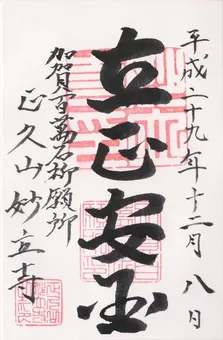 平成二十九年十二月八日
立正安国
加賀百萬石祈願所
正久山妙立寺